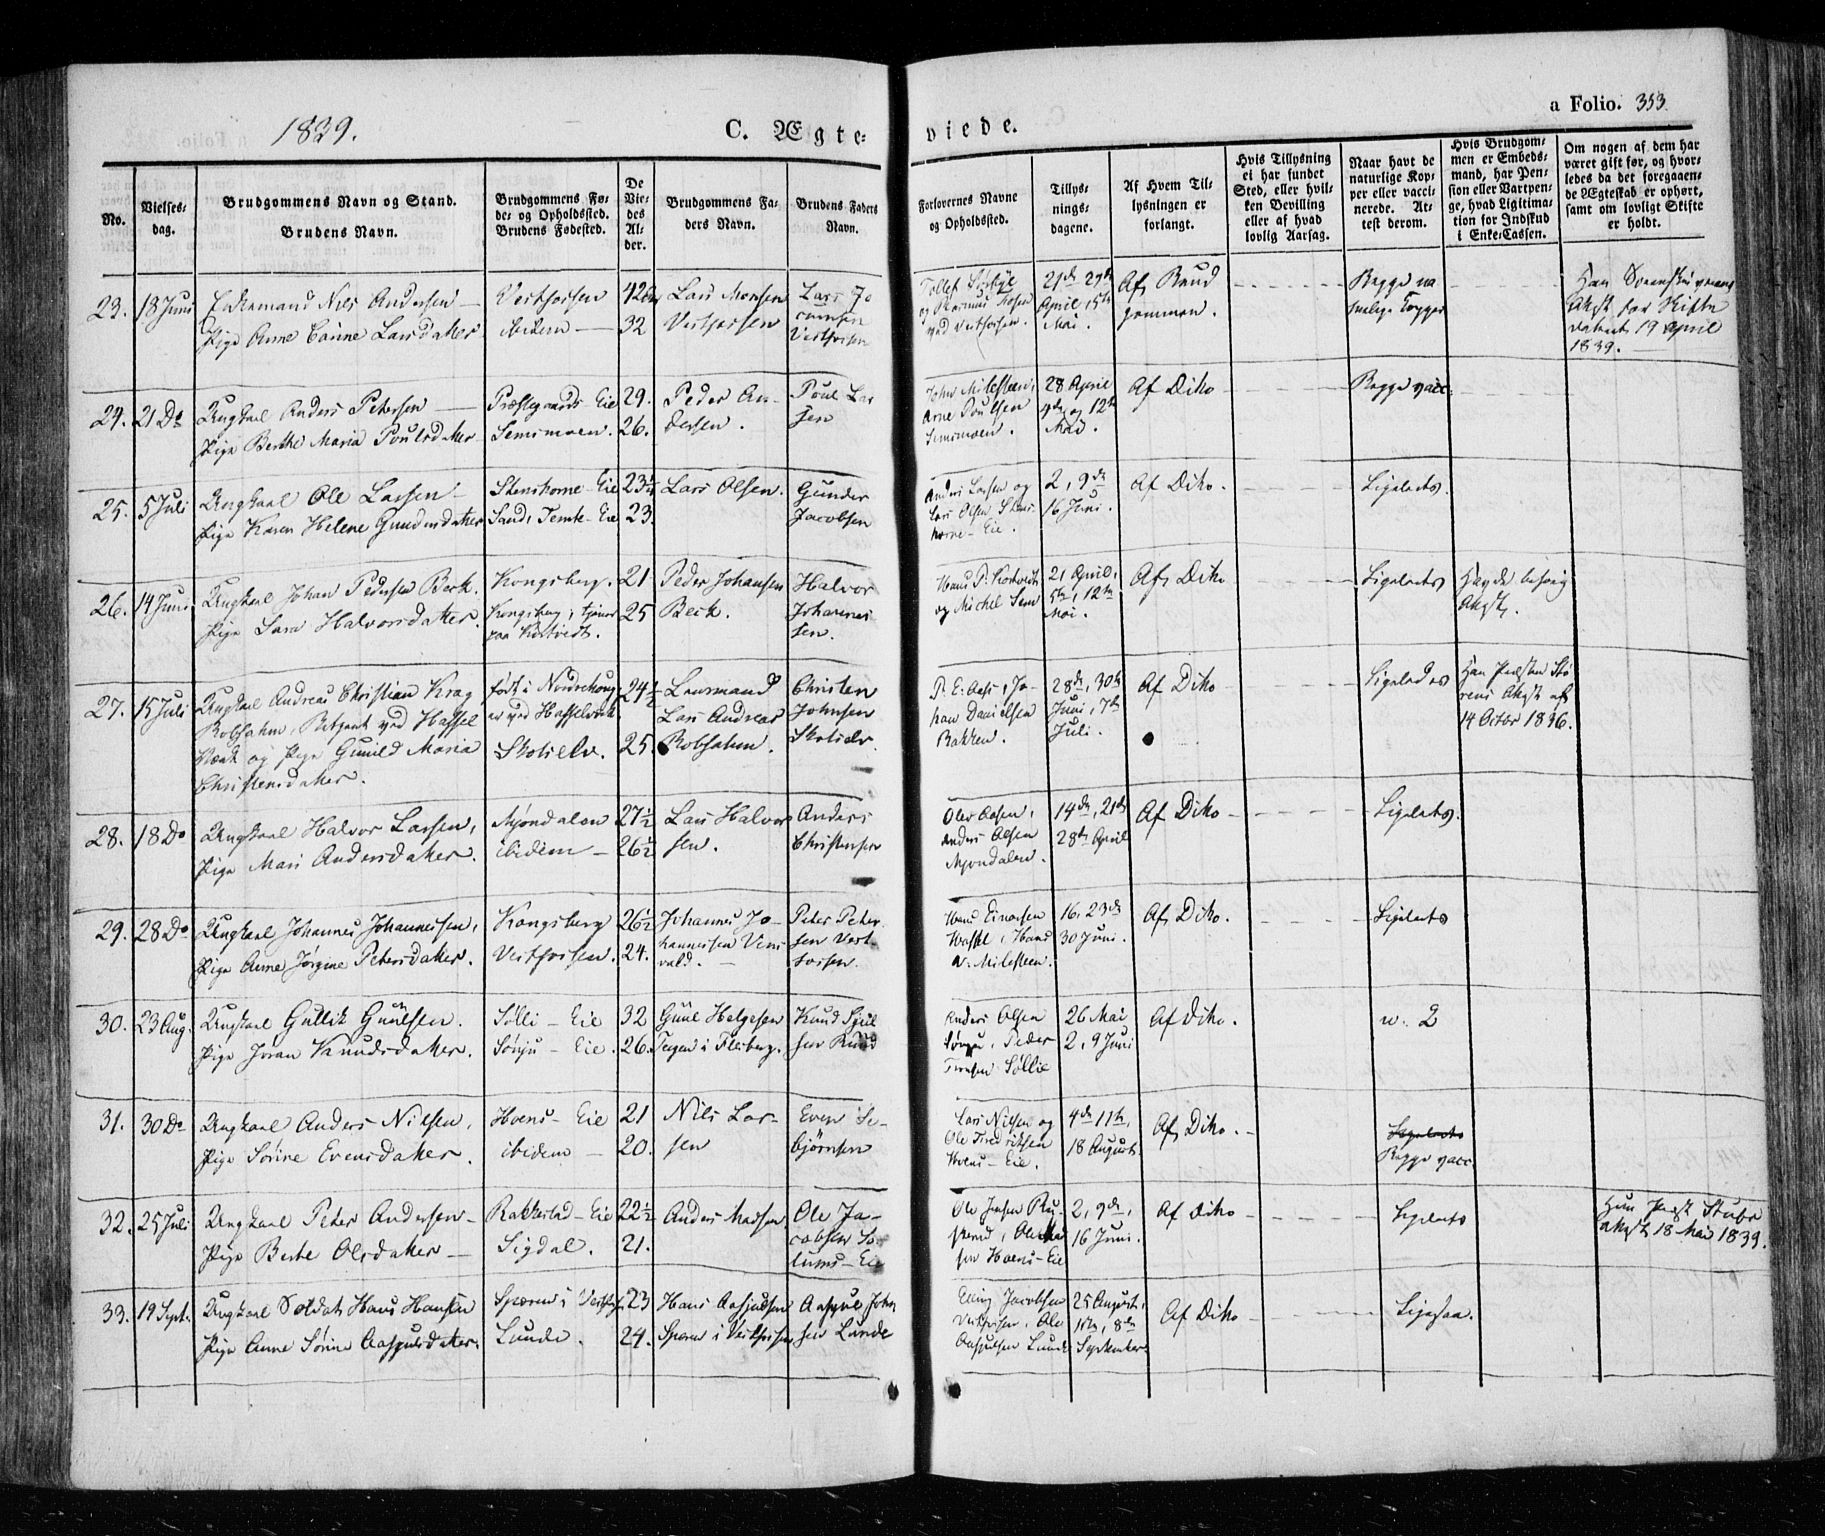 1839.
C. Ægte-
viede.
a Folio. 353.
No.
Vielses-
dag.
Brudgommens Navn og Stand.
Brudens Navn.
Brudgommens Fø-
de- og Opholdssted.
Brudens Fødested.
De
Vie-
des
Al-
der.
Brudgommens Fa-
ders Navn.
Brudens Faders
Navn.
Forlovernes Navne
og Opholdssted.
Tillys-
nings-
dagene.
Af Hvem Til-
lysningen er
forlangt.
Hvis Tillysning
ei har fundet
Sted, eller hvil-
ken Bevilling
eller af hvad
lovlig Aarsag.
Naar havt de
naturlige Kop-
per eller vacci-
nerede. At-
test derom.
Hvis Brudgom-
men er Embeds-
mand, har Pen-
sion eller Vartpen-
ge, hvad Legitima-
tion for Indskud
i Enke-Cassen.
Om nogen af dem har
været gift før, og hvor-
ledes da det foregaaen-
de Ægteskab er ophørt,
samt om lovligt Skifte
er holdt.
23. 18 Juni
Enkemand Nils Andersen
Pige Anne Larsdatter
Vestfossen
ibidem
42
32
Lars Monsen
Vestfossen
Lars Ja
cobsen
Vestfossen
ved Vestfossen.
21de 28de
April
Mai.
Af Brud
gommen.
Begge na
turlige Kopper
for Skifte
dateret 19 April
1839.
24. 21 Do
Ungkarl Anders Petersen
Pige Berthe Maria Poulsdatter
Præstegaards Eie
Semsmoen.
29.
26.
Peder An-
dersen.
Poul Lar
sen
John Milesteen,
Arne Poulsen
Semsmoen.
28 April
og 12te
Mai.
Af Ditto
Begge vacc.
25. 5 Juli
Ungkarl Ole Larsen
Pige Karen Helene Gundersdatter
Stenshorne-Eie
Sand, Temte-Eie
23½
23.
Lars Olsen.
Gunder
Jacobsen
Anders Larsen og
Lars Olsen Stens
horne-Eie.
2, 9de
16 Juni.
Af Ditto.
Ligeledes.
26. 14 Juni
Ungkarl Johan Pedersen Beck.
Pige Sara Halvorsdatter.
Kongsberg.
Kongsberg, tjener
paa
21
25
Peder Johansen
Beck.
Halvor
Johannes
sen.
og Michel Sem
21 April,
5te, 12te
Mai.
Af Ditto
Ligeledes
27. 15 Juli
Ungkarl Andreas Christian Krag
Robsahm, Betjent ved Hassel
Værk og Pige Gunild Maria
Christensdatter.
født i
er ved Hasselværk
Skotselv.
24½
25.
Lensmand
Lars Andreas
Robsahm.
Christen
Johnsen
Skotselv.
P. E. Aas, Jo-
han Danielsen
Bakken.
28de, 30te
Juni, 7de
Juli.
Af Ditto
Ligeledes
14 Octbr 1836.
28. 18 Do
Ungkarl Halvor Larsen,
Pige Mari Andersdatter.
Mjøndalen
ibidem
27½
26½
Lars Halvor
sen.
Anders
Christensen
Anders Olsen
Mjøndalen.
14de, 21de
28de April
Af Ditto
Ligeledes.
29. 28 Do
Ungkarl Johannes Johannessen,
Pige Anne Jørgine Petersdatter.
Kongsberg
Vestfossen.
26½
24.
Johannes Jo-
hannessen
Peter Peter-
sen Vest-
fossen.
Hans Einarsen
A. Milesteen.
16, 23de
30 Juni.
Af Ditto.
Ligeledes
30. 23 Aug.
Ungkarl Gullik Guulsen.
Pige Joran Knudsdatter.
Sølli-Eie
Sønju-Eie.
32
26.
Guul Helgesen
Teigen i Flesberg.
Knud Gjul
sen Ruud
Anders Olsen
Sønju, Peder
Søllie
26 Mai
2, 9 Juni
Af Ditto.
n. 2
31. 30 Do
Ungkarl Anders Nilsen,
Pige Sørine Evensdatter.
Hoens-Eie
ibidem
21
20.
Nils Lar-
sen
Even Se-
bjørnsen
Lars Nilsen og
Ole Fredriksen
Hoens-Eie.
4de 11te,
18 August
Af Ditto.
Ligeledes
Begge vacc.
32. 25 Juli
Ungkarl Peter Andersen
Pige Berte Olsdatter
Rakkestad-Eie
Sigdal.
22½
21.
Anders Madsen
Ole Ja-
cobsen So
lums-Eie
Ole Jensen
sen Hoens-Eie
2, 9de,
16 Juni.
Af Ditto
Ligeledes
Attest 18 Mai 1839.
33. 19 Sept.
Ungkarl Soldat Hans Hansen
Pige Anne Sørine Aaspulsdatter.
Speren i Vestf.
Lunde.
23
24.
Hans
Speren i Vestfossen
John
sen Lunde
Elling Jacobsen
Vestfossen, Ole
Lunde
25 August,
1ste, 8de
September
Af Ditto
Ligesaa.